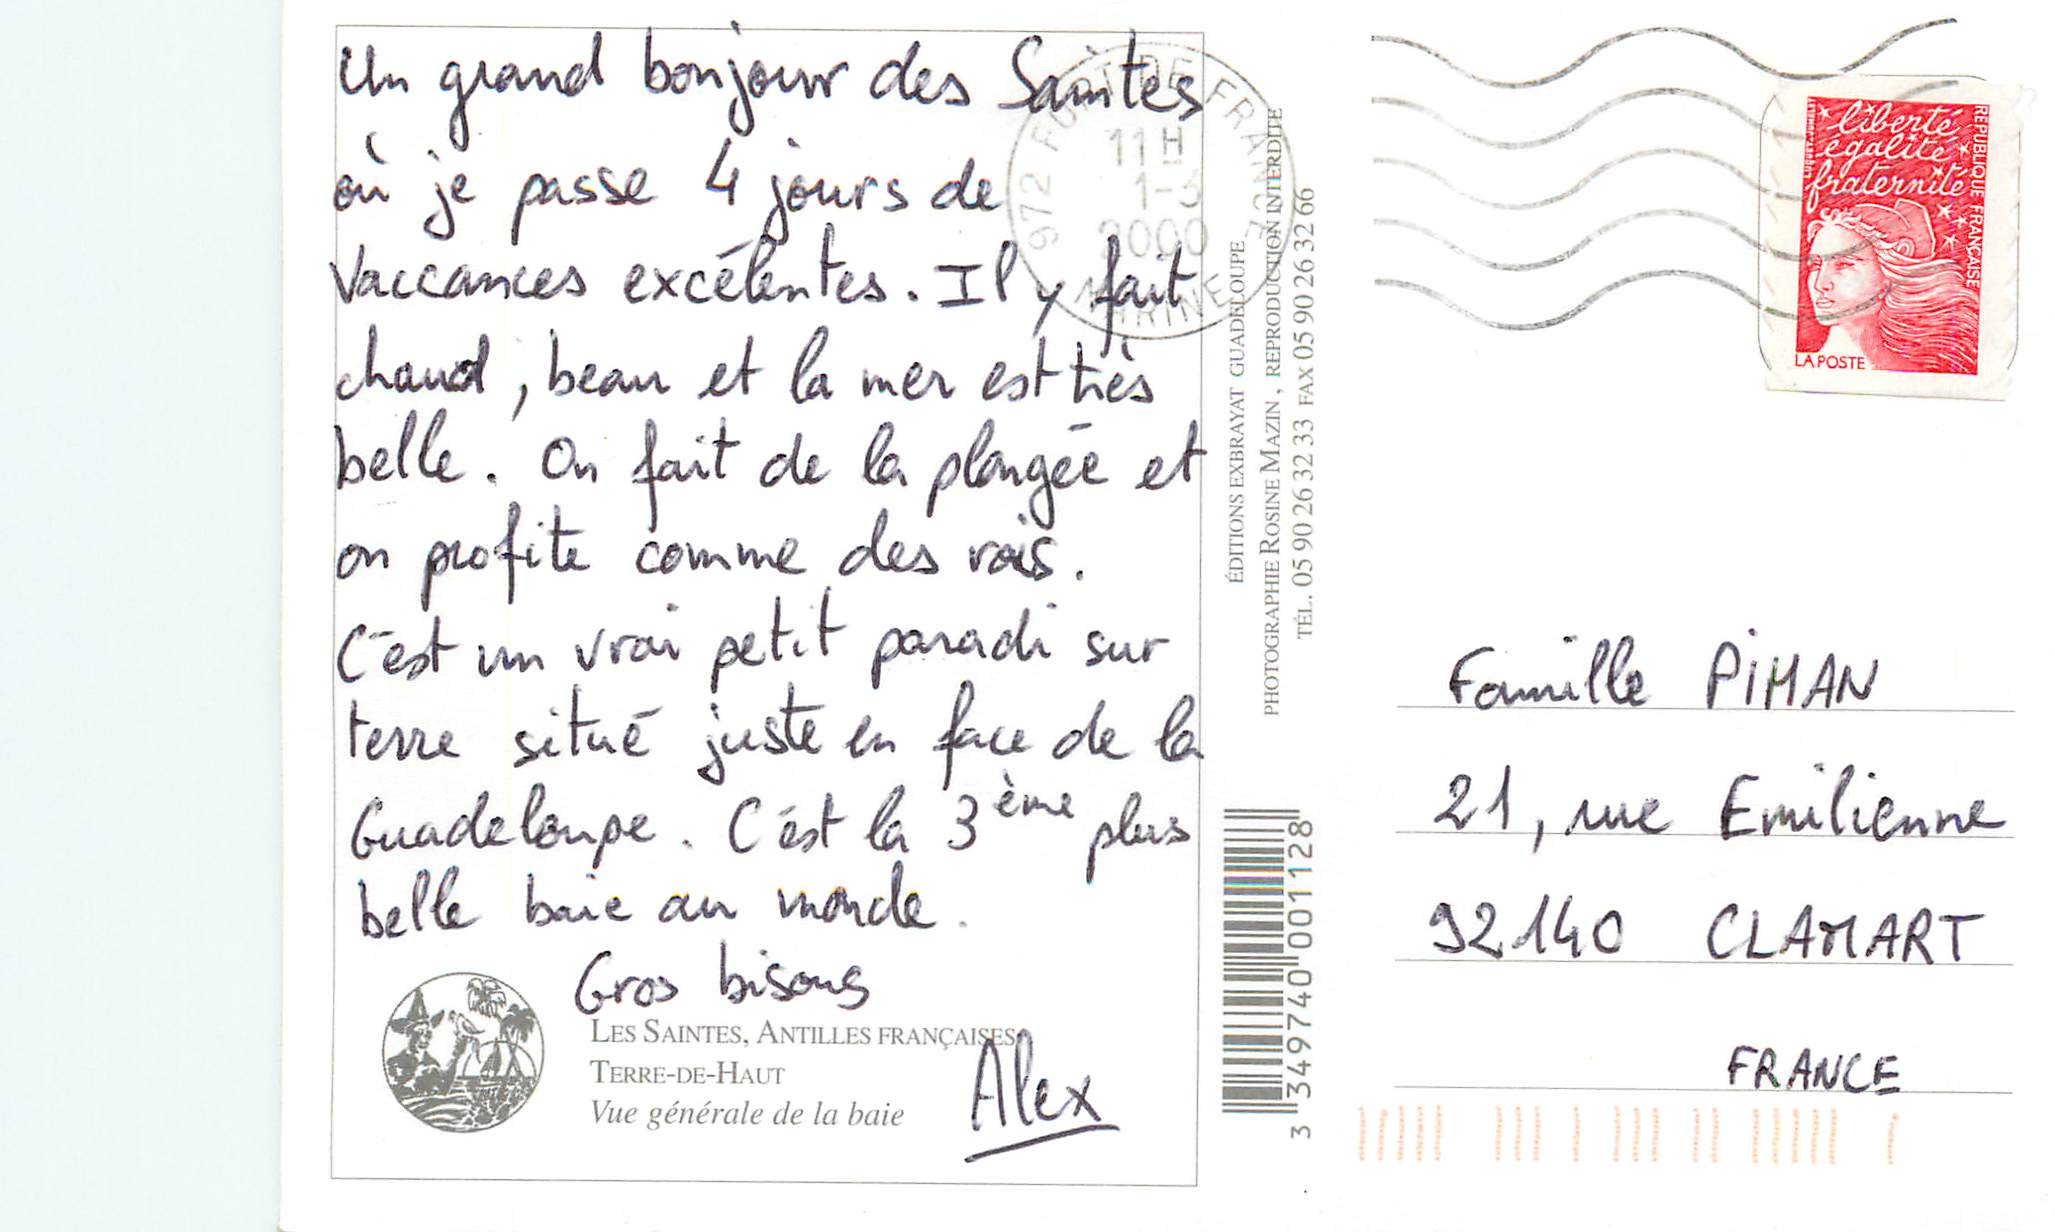 Un grand bonjour des Saintes
où je passe 4 jours de
vaccances excélentes. Il y fait
chaud, beau et la mer est très
belle. On fait de la plongée et
on profite comme des rois.
C'est un vrai petit paradi sur
terre situé juste en face de la
Guadeloupe. C'est la 3ème plus
belle baie au monde.
Gros bisous
Alex
LES SAINTES, ANTILLES FRANÇAISES
TERRE-DE-HAUT
Vue générale de la baie
ÉDITIONS EXBRAYAT GUADELOUPE
PHOTOGRAPHIE ROSINE MAZIN, REPRODUCTION INTERDITE
TÉL. 05 90 26 32 33 FAX 05 90 26 32 66
3 349740 001128
972 FORT DE FRANCE
11H
1-3
2000
MARINE
liberté
égalité
fraternité
RÉPUBLIQUE FRANÇAISE
LA POSTE
Famille PIMAN
21, rue Emilienne
92140 CLAMART
FRANCE